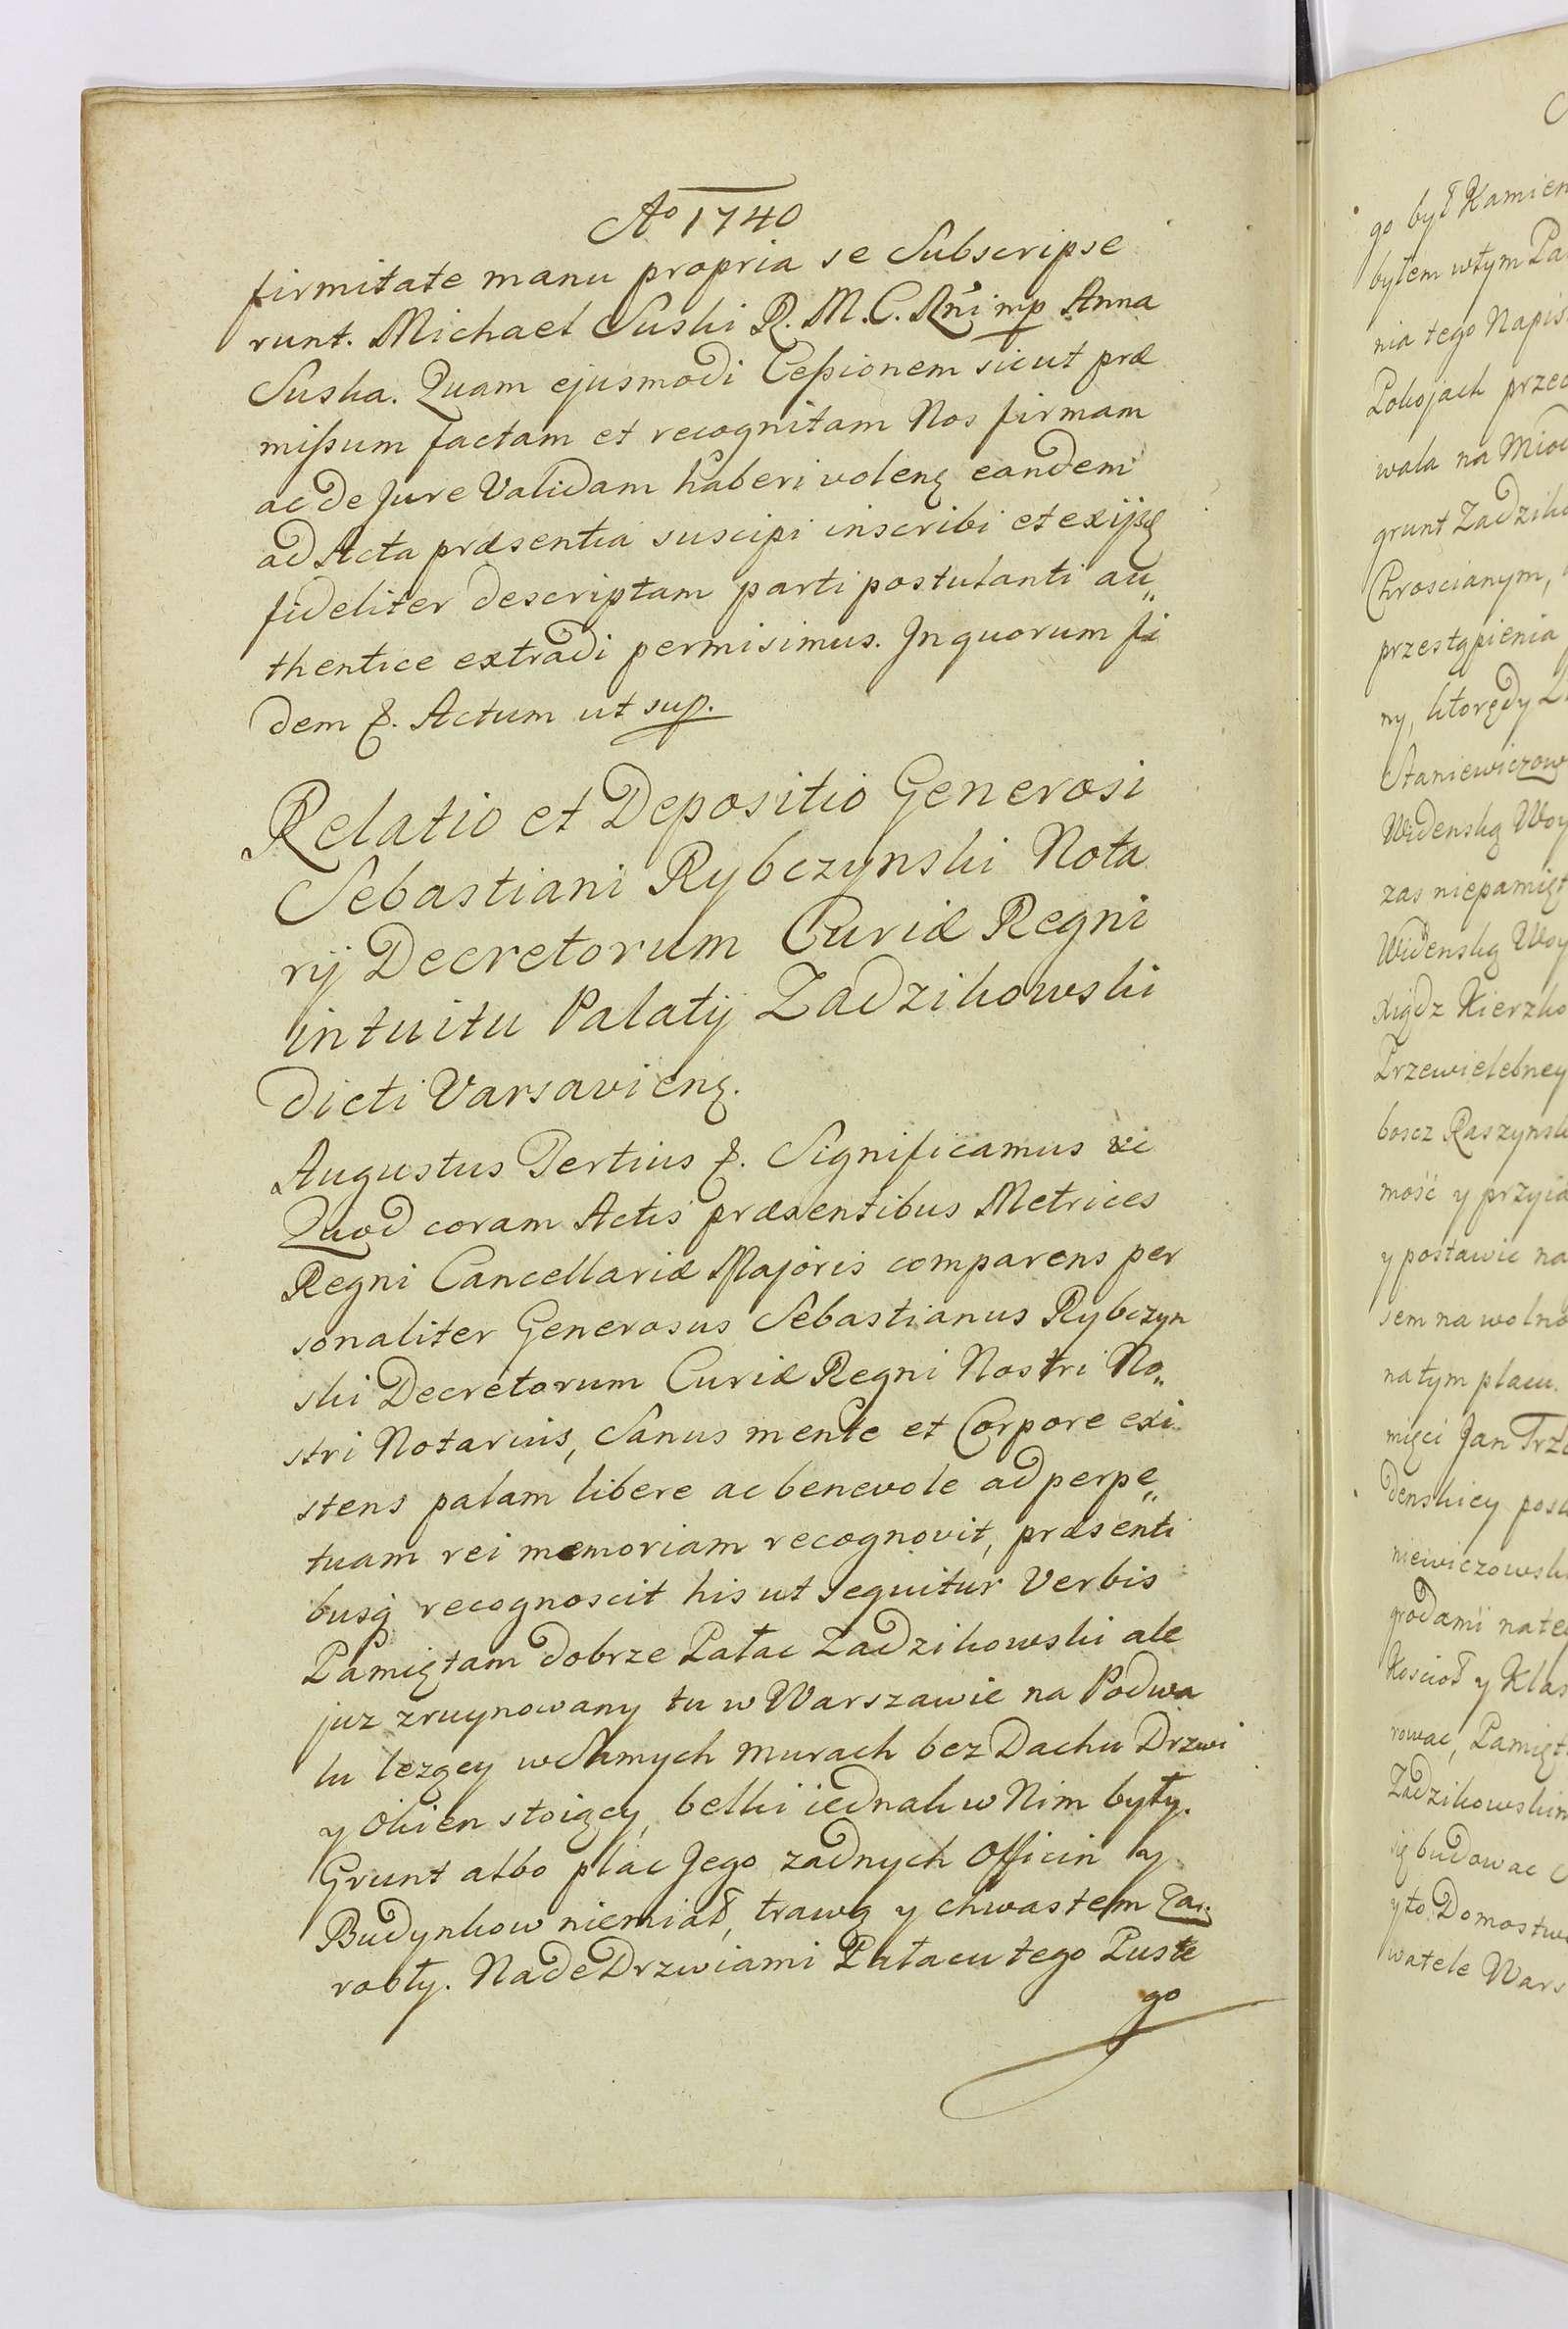 Ao 1740
firmitate manu propria se Subscripse
runt. Michael Suski R. M. C. Rni mp Anna
Suska. Quam ejusmodi Cessionem sicut præ
missum factam et recognitam Nos firmam
ac de Jure Validam haberi volenȝ eandem
ad Acta præsentia suscipi inscribi et exijsȝ
fideliter descriptam parti postulanti au„
thentice extradi permisimus. In quorum fi
dem &. Actum ut sup.
Relatio et Depositio Generosi
Sebastiani Rybczynski Nota
rij Decretorum Curiæ Regni
intuitu Palatij Zadzikowski
dicti Varsavienȝ.
Augustus Tertius &. Significamus &c
Quod coram Actis præsentibus Metrices
Regni Cancellariæ Majoris comparens per
sonaliter Generosus Sebastianus Rybczyn
ski Decretorum Curiæ Regni Nostri No„
stri Notarius, Sanus mente et Corpore exi
stens palam libere ac benevole ad perpe„
tuam rei memoriam recognovit, præsenti
busq recognoscit his ut sequitur Verbis
Pamiętam dobrze Pałac Zadzikowski ale
juz zruynowany tu w Warszawie na Podwa
lu lezący w Samych murach bez Dachu Drzwi
y Okien stoiący, belki iednak w Nim były.
Grunt albo plac Jego zadnych Officin y
Budynkow niemiał, trawą y chwastem Za„
rosły. Nade Drzwiami Pałacu tego Puste
go
go był Kamien
byłem w tym Pa
nia tego Napis
Pokojach przed
wała na Miod
grunt Zadzik
Chroscianym,
przestąpienia
ny, ktorędy
Staniewiczow
Widenską Woy
zas niepamięt
Widenską Woy
xiądz Kierzko
Przewielebney
boscz Raszynsk
mość y przyia
y postawić na
sem na wolno
na tym placu.
mięci Jan Trze
denskiey posk
niewiczowsk
grodami na te
Kościoł y Klas
rowac, Pamięt
Zadzikowskim
ię budowac
y to Domostw
watele Wars